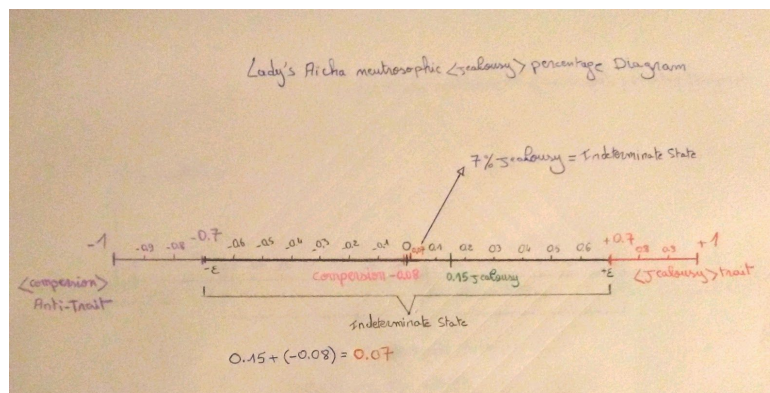 Lady's Aicha neutrosophic <Jealousy> percentage Diagram
7% Jealousy = Indeterminate State
-1 -0.9 -0.8 -0.7 -0.6 -0.5 -0.4 -0.3 -0.2 -0.1 0 0.07 0.1 0.2 0.3 0.4 0.5 0.6 +0.7 0.8 0.9 +1
-ε compersion -0.08 0.15 Jealousy +ε
<compersion>
Anti-Trait
<Jealousy> trait
Indeterminate State
0.15 + (-0.08) = 0.07